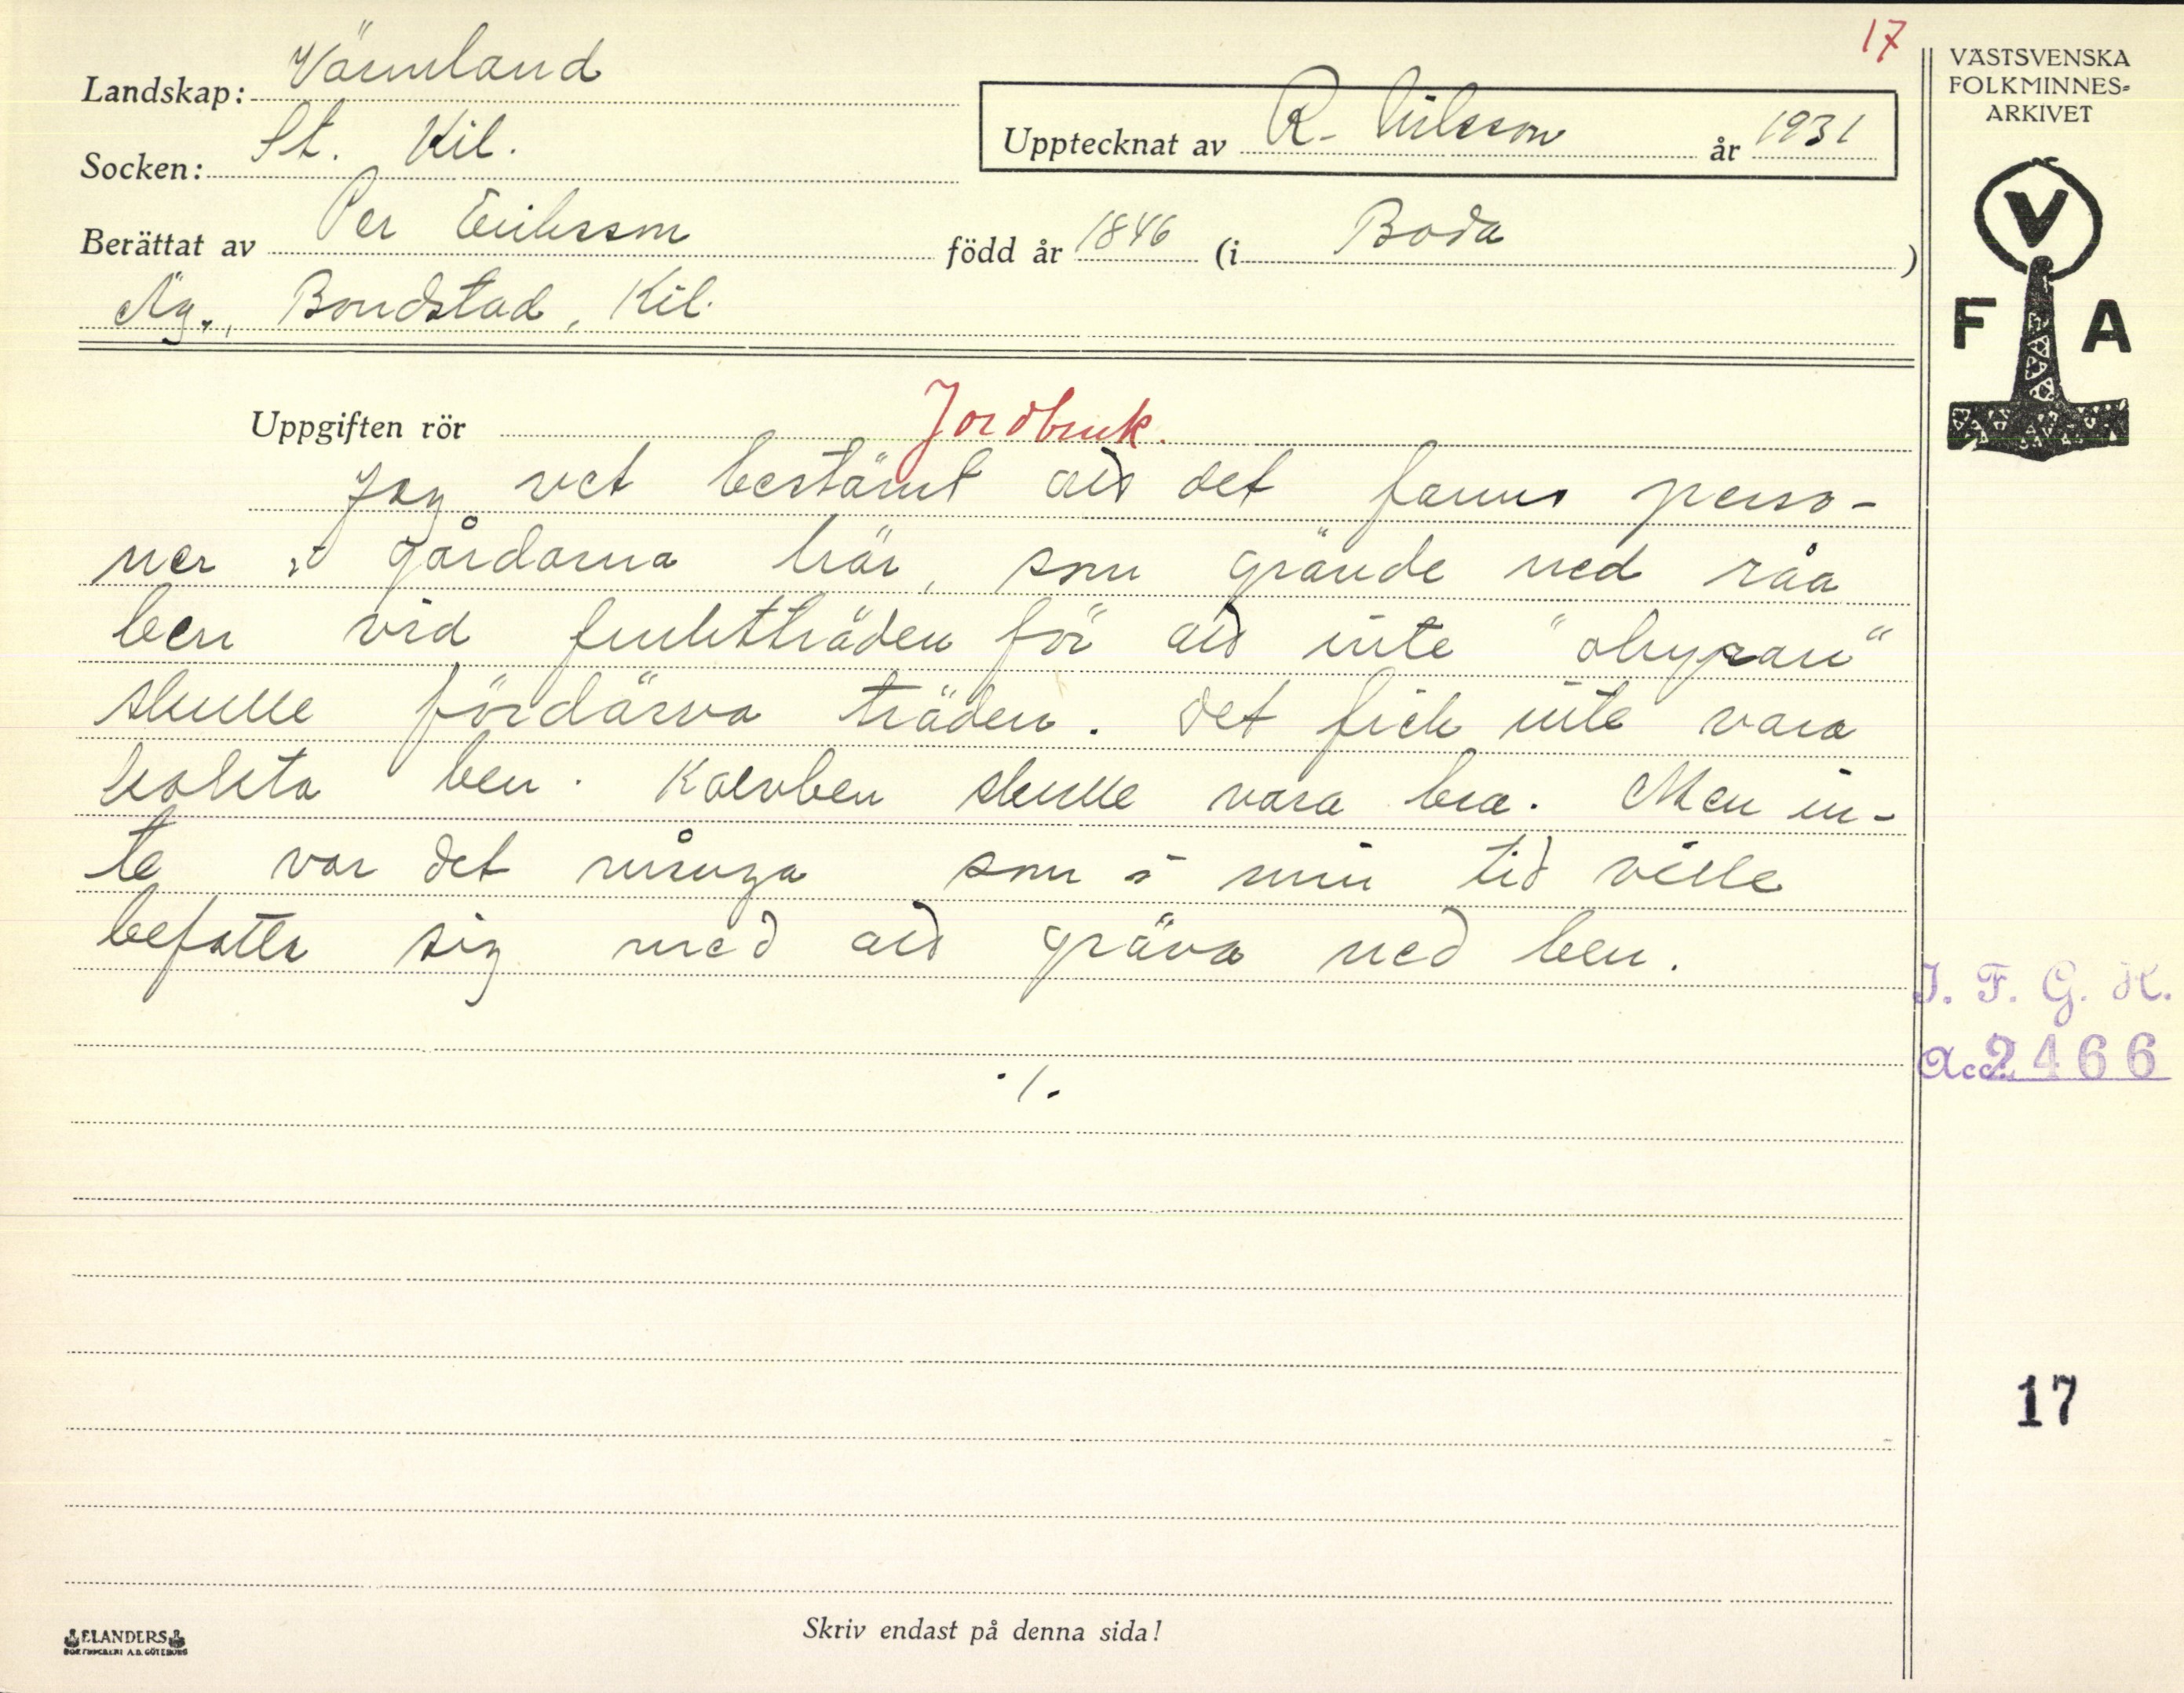 17
VÄSTSVENSKA
FOLKMINNES-
ARKIVET
Landskap: Värmland
Socken: St. Kil.
Upptecknat av R. Nilsson år 1931
Berättat av Per Eriksson född år 1846 (i Boda )
Äg., Bondstad, Kil.
V
F A
Uppgiften rör Jordbruk.
Jag vet bestämt att det fanns perso-
ner i gårdarna här, som grävde ned råa
ben vid fruktträden för att inte "ohyran"
skulle fördärva träden. Det fick inte vara
kokta ben. Kalvben skulle vara bra. Men in-
te var det många som i min tid ville
befatta sig med att gräva ned ben.
./.
I. F. G. H.
Acc. 2466
17
Skriv endast på denna sida!
ELANDERS
BOKTRYCKERI A.B. GÖTEBORG